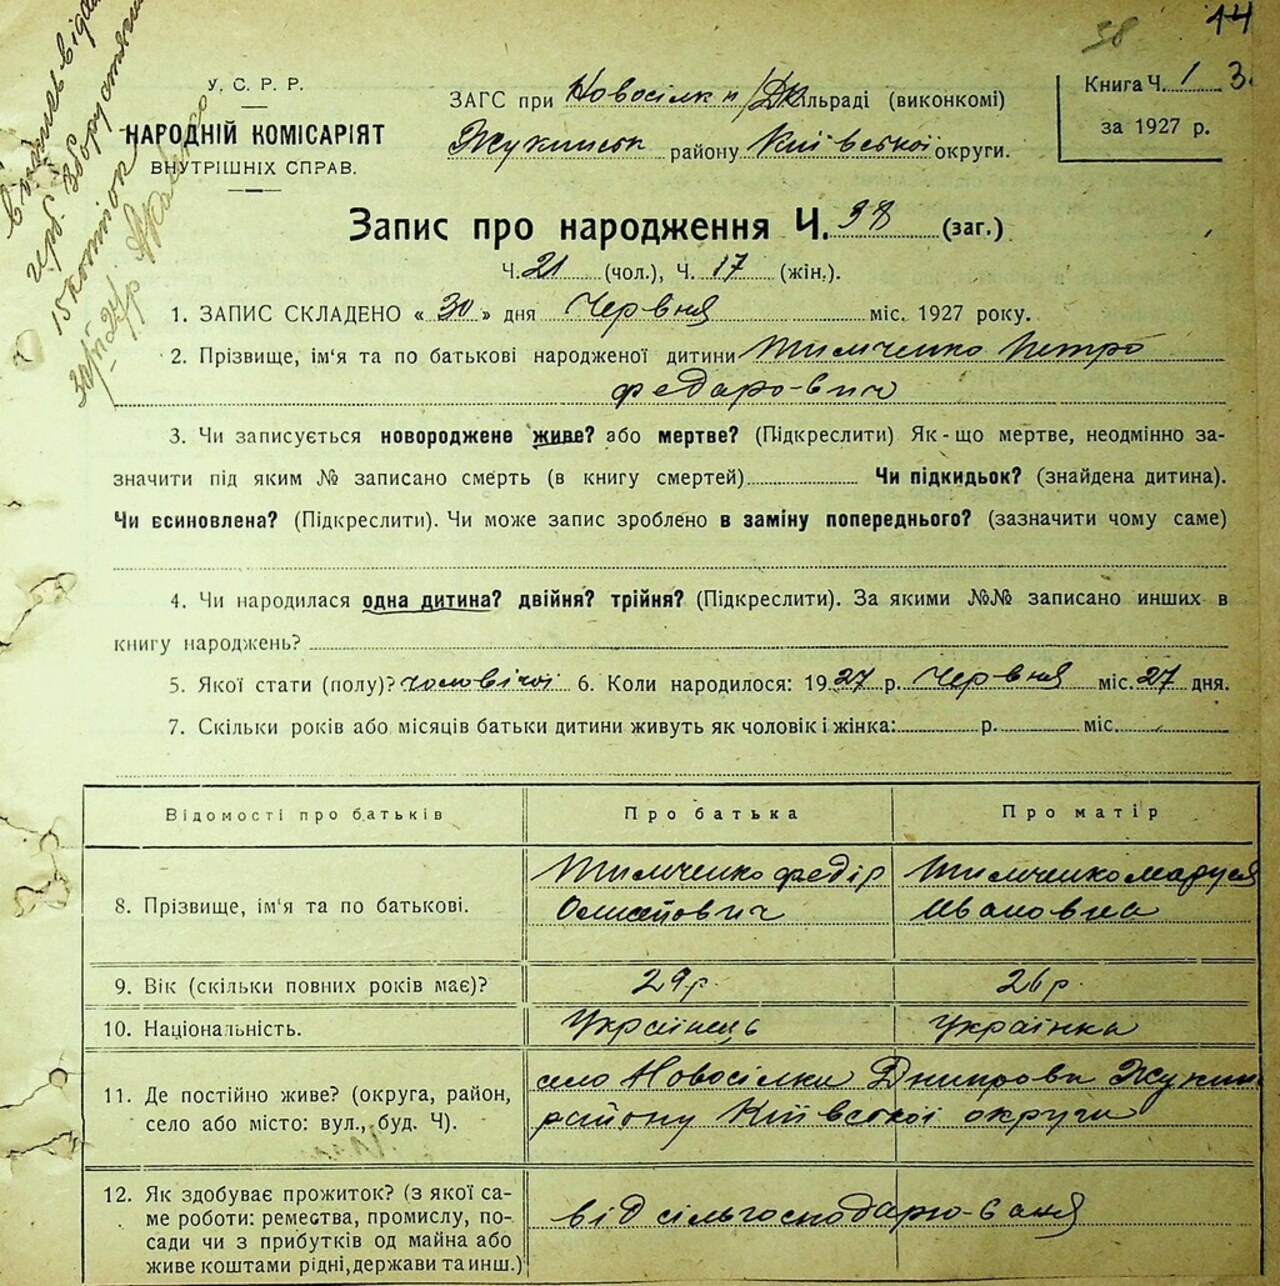 38
14
випись видан
герб. збору стягн
15 копійок
30/VI 27 р.
У. С. Р. Р.
НАРОДНІЙ КОМІСАРІЯТ
ВНУТРІШНІХ СПРАВ.
ЗАГС при Новосілки /Дн сільраді (виконкомі)
Жукинськ району Київської округи.
Книга Ч. 1 3.
за 1927 р.
Запис про народження Ч. 38 (заг.)
Ч. 21 (чол.), Ч. 17 (жін.).
1. ЗАПИС СКЛАДЕНО « 30 » дня Червня міс. 1927 року.
2. Прізвище, ім'я та по батькові народженої дитини Тимченко Петро
Федаро-вич
3. Чи записується новороджене живе? або мертве? (Підкреслити) Як-що мертве, неодмінно за-
значити під яким № записано смерть (в книгу смертей) Чи підкидьок? (знайдена дитина).
Чи всиновлена? (Підкреслити). Чи може запис зроблено в заміну попереднього? (зазначити чому саме)
4. Чи народилася одна дитина? двійня? трійня? (Підкреслити). За якими №№ записано инших в
книгу народжень?
5. Якої стати (полу)? чоловічої 6. Коли народилося: 1927 р. Червня міс. 27 дня.
7. Скільки років або місяців батьки дитини живуть як чоловік і жінка: р. міс.
Відомості про батьків Про батька Про матір
8. Прізвище, ім'я та по батькові.
Тимченко Федір
Тимченко Маруся
Івановна
9. Вік (скільки повних років має)? 29 р. 26 р.
10. Національність. Українець Українка
11. Де постійно живе? (округа, район,
село або місто: вул., буд. Ч).
село Новосілки Дніпрови Жукин
району Київської округи
12. Як здобуває прожиток? (з якої са-
ме роботи: ремества, промислу, по-
сади чи з прибутків од майна або
живе коштами рідні, держави та инш.)
від сільгосподарю-вання